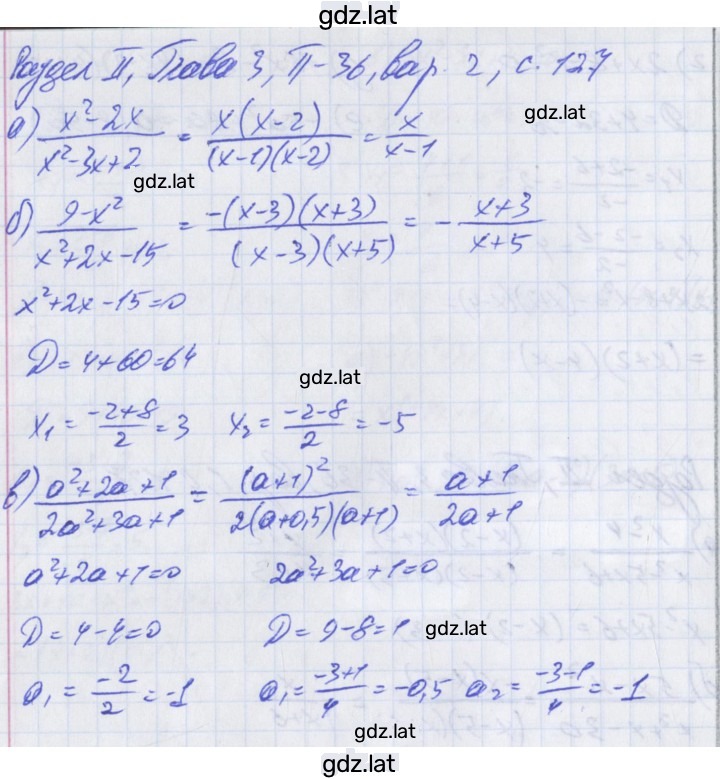 gdz.lat
Раздел II, Глава 3, П-36, вар. 2, с. 127
gdz.lat
а) (x²-2x)/(x²-3x+2) = (x(x-2))/((x-1)(x-2)) = x/(x-1)
gdz.lat
б) (9-x²)/(x²+2x-15) = (-(x-3)(x+3))/((x-3)(x+5)) = - (x+3)/(x+5)
x²+2x-15=0
D=4+60=64
gdz.lat
x₁ = (-2+8)/2 = 3 x₂ = (-2-8)/2 = -5
в) (a²+2a+1)/(2a²+3a+1) = (a+1)²/(2(a+0,5)(a+1)) = (a+1)/(2a+1)
a²+2a+1=0 2a²+3a+1=0
D=4-4=0 D=9-8=1
gdz.lat
a₁ = (-2)/2 = -1 a₁ = (-3+1)/4 = -0,5 a₂ = (-3-1)/4 = -1
gdz.lat
gdz.lat